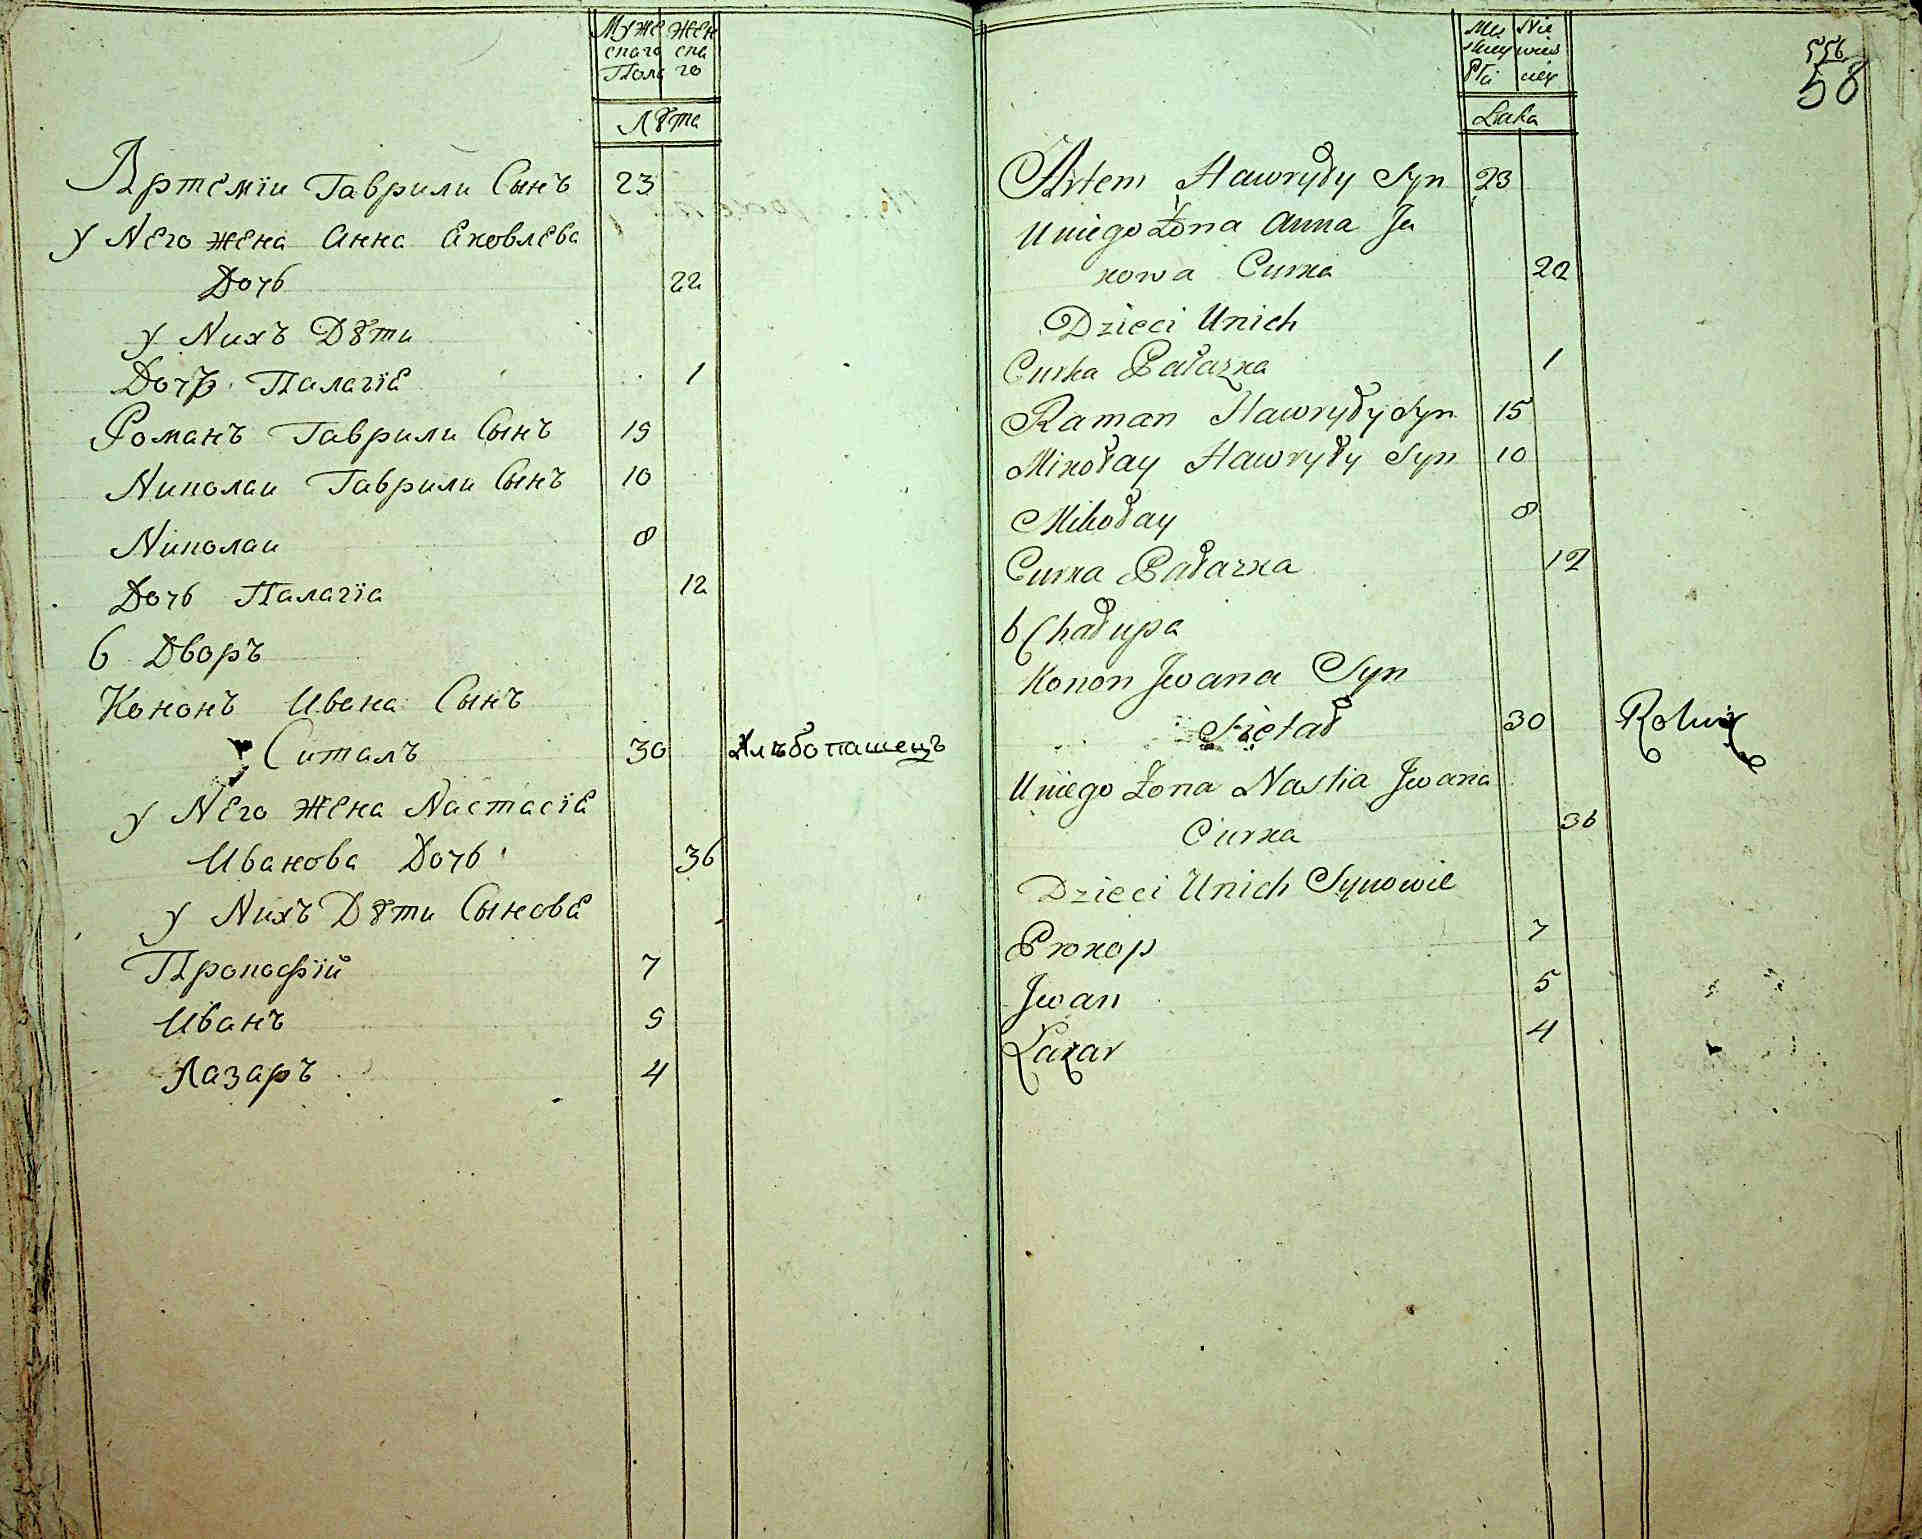 Муже Жен
скаго ска
Пола го
Лѣта
Артемiи Гаврили Сынъ 23
у Него жена Анна Яковлева
Дочь 22
у Нихъ Дѣти
Дочь Палагiя 1
Романъ Гаврили Сынъ 15
Николаи Гаврили Сынъ 10
Николаи 8
Дочь Палагiа 12
6 Дворъ
Кононъ Ивана Сынъ
Ситалъ 30 Хлѣбопашецъ
у Него Жена Настасiя
Иванова Дочь 36
у Нихъ Дѣти Сыновя
Прокофiй 7
Иванъ 5
Лазаръ 4
556
58
Płci
Lata
Artem Hawryły Syn 23
Uniego Żona Anna Ja
kowa Curka 22
Dzieci Unich
Curka Pałazka 1
Raman Hawryły Syn 15
Mikołay Hawryły Syn 10
Mikołay 8
Curka Pałazka 12
6 Chałupa
Konon Jwana Syn
Sietał 30 Rolnik
Uniego Żona Nastia Jwana
Curka 36
Dzieci Unich Synowie
Prokop 7
Jwan 5
Łazar 4